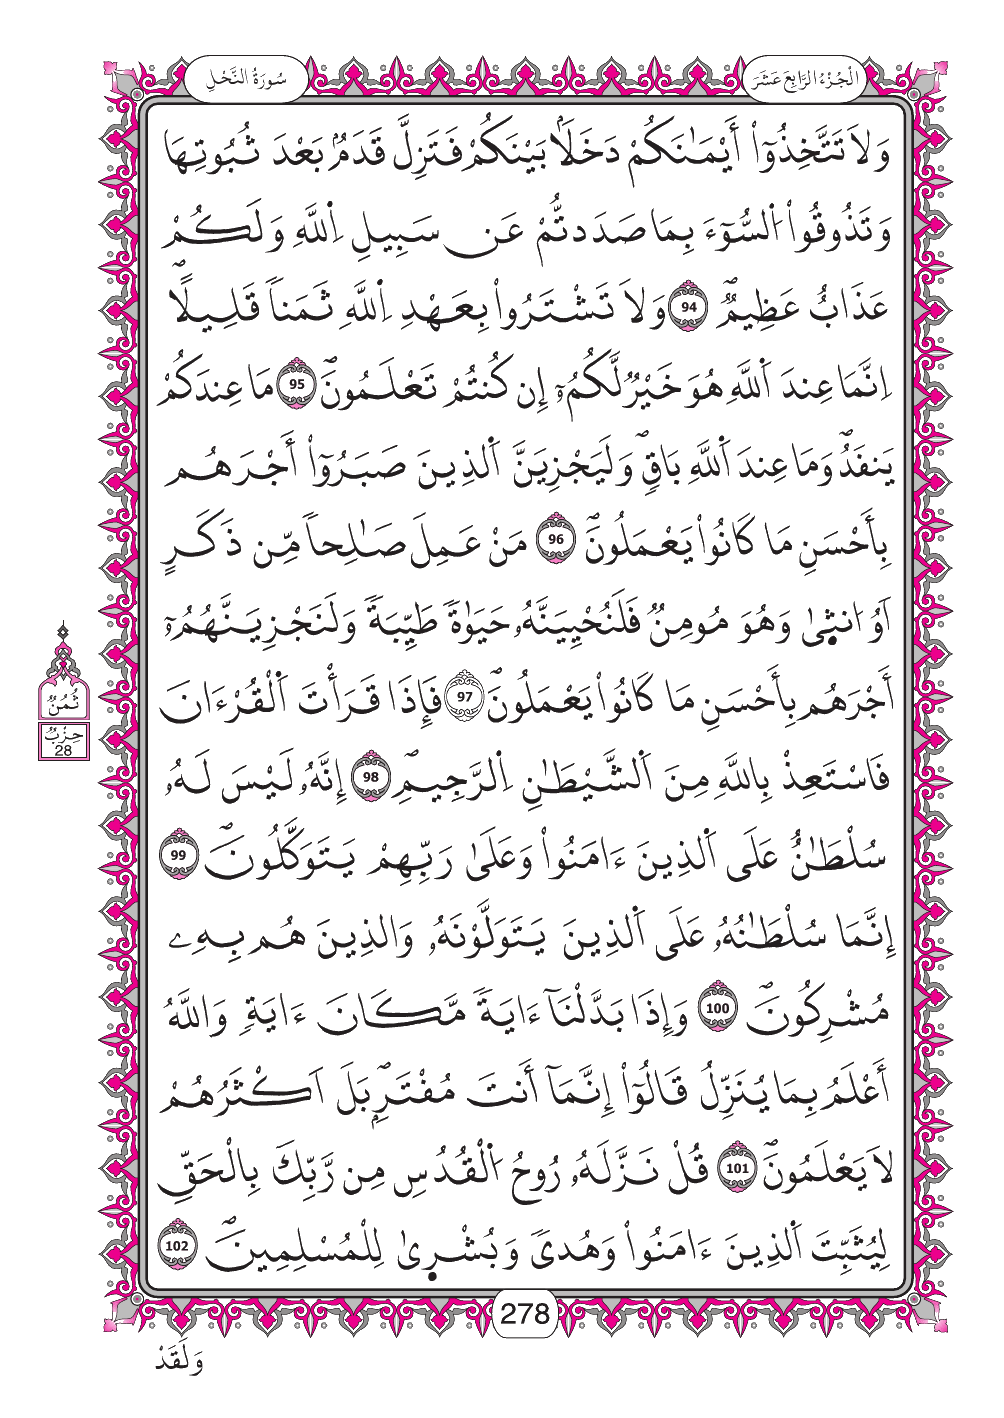 سُورَةُ النَّحْلِ
الْجُزْءُ الرَّابِعَ عَشَرَ
وَلَا تَتَّخِذُوٓاْ أَيْمَٰنَكُمْ دَخَلَاۢ بَيْنَكُمْ فَتَزِلَّ قَدَمُۢ بَعْدَ ثُبُوتِهَا
وَتَذُوقُواْ اُ۬لسُّوٓءَ بِمَا صَدَدتُّمْ عَن سَبِيلِ اِ۬للَّهِ وَلَكُمْ
عَذَابٌ عَظِيمٞۖ 94 وَلَا تَشْتَرُواْ بِعَهْدِ اِ۬للَّهِ ثَمَناٗ قَلِيلاًۖ
اِنَّمَا عِندَ اَ۬للَّهِ هُوَ خَيْرٞ لَّكُمُۥٓ إِن كُنتُمْ تَعْلَمُونَۖ 95 مَا عِندَكُمْ
يَنفَدُۖ وَمَا عِندَ اَ۬للَّهِ بَاقٖۖ وَلَيَجْزِيَنَّ اَ۬لذِينَ صَبَرُوٓاْ أَجْرَهُم
بِأَحْسَنِ مَا كَانُواْ يَعْمَلُونَۖ 96 مَنْ عَمِلَ صَٰلِحاٗ مِّن ذَكَرٍ
اَوُ ا۟نث۪يٰ وَهُوَ مُومِنٞ فَلَنُحْيِيَنَّهُۥ حَيَوٰةٗ طَيِّبَةٗ وَلَنَجْزِيَنَّهُمُۥٓ
أَجْرَهُم بِأَحْسَنِ مَا كَانُواْ يَعْمَلُونَۖ 97 فَإِذَا قَرَأْتَ اَ۬لْقُرْءَانَ
فَاسْتَعِذْ بِاللَّهِ مِنَ اَ۬لشَّيْطَٰنِ اِ۬لرَّجِيمِۖ 98 إِنَّهُۥ لَيْسَ لَهُۥ
سُلْطَٰنٌ عَلَى اَ۬لذِينَ ءَامَنُواْ وَعَلَىٰ رَبِّهِمْ يَتَوَكَّلُونَۖ 99
إِنَّمَا سُلْطَٰنُهُۥ عَلَى اَ۬لذِينَ يَتَوَلَّوْنَهُۥ وَالذِينَ هُم بِهِۦ
مُشْرِكُونَۖ 100 وَإِذَا بَدَّلْنَآ ءَايَةٗ مَّكَانَ ءَايَةٖ وَاللَّهُ
أَعْلَمُ بِمَا يُنَزِّلُ قَالُوٓاْ إِنَّمَآ أَنتَ مُفْتَرِۢۖ بَلَ اَكْثَرُهُمْ
لَا يَعْلَمُونَۖ 101 قُلْ نَزَّلَهُۥ رُوحُ اُ۬لْقُدُسِ مِن رَّبِّكَ بِالْحَقِّ
لِيُثَبِّتَ اَ۬لذِينَ ءَامَنُواْ وَهُدىٗ وَبُشْر۪يٰ لِلْمُسْلِمِينَۖ 102
ثُمُنٌ
حِزْبٌ
28
278
وَلَقَدْ